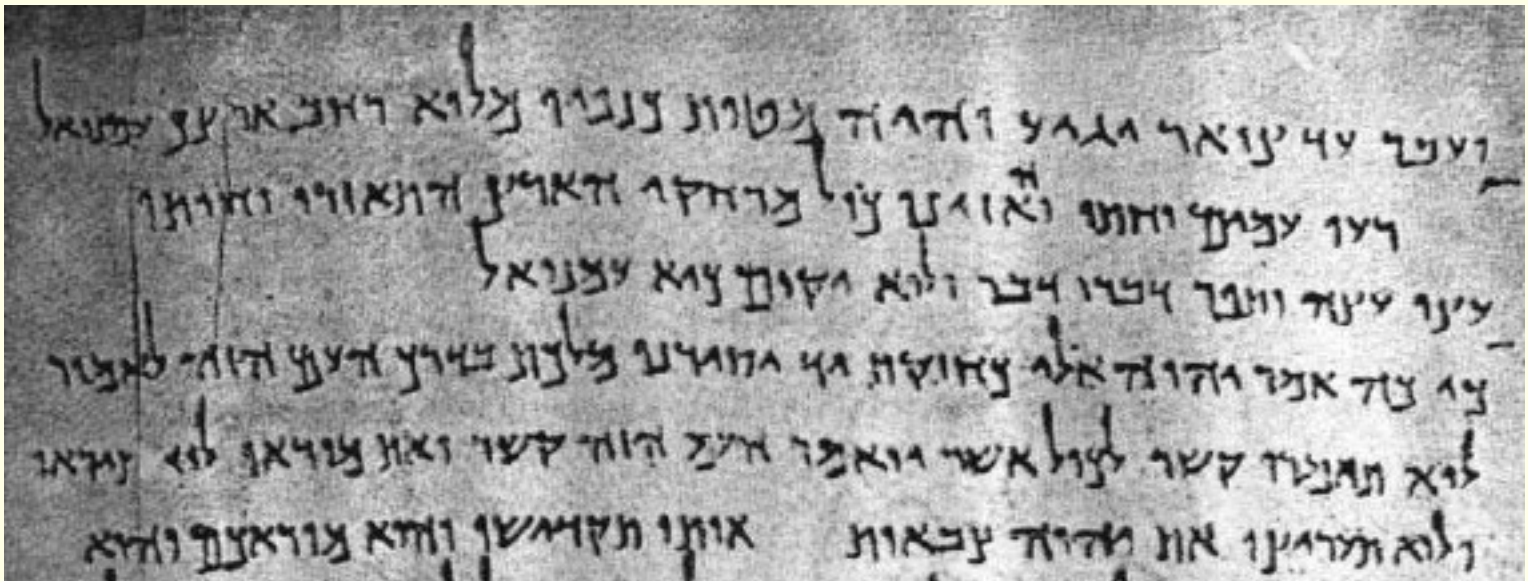 ועבר עד צואר יגיע והיה מטות כנפיו מלוא רחב ארצך עמנואל
רעו עמים וחתו והאזינו כול מרחקי הארץ התאזרו וחותו
עצו עצה ותפר דברו דבר ולוא יקום כיא עמנואל
כי כוה אמר יהוה אלי כחזקת יד יסירנו מלכת בדרך העם הזה לאמור
לוא תאמרו קשר לכול אשר יואמר העם הזה קשר ואת מוראו לוא תיראו
ולוא תעריצו את יהוה צבאות אותו תקדישו והוא מוראכם והוא